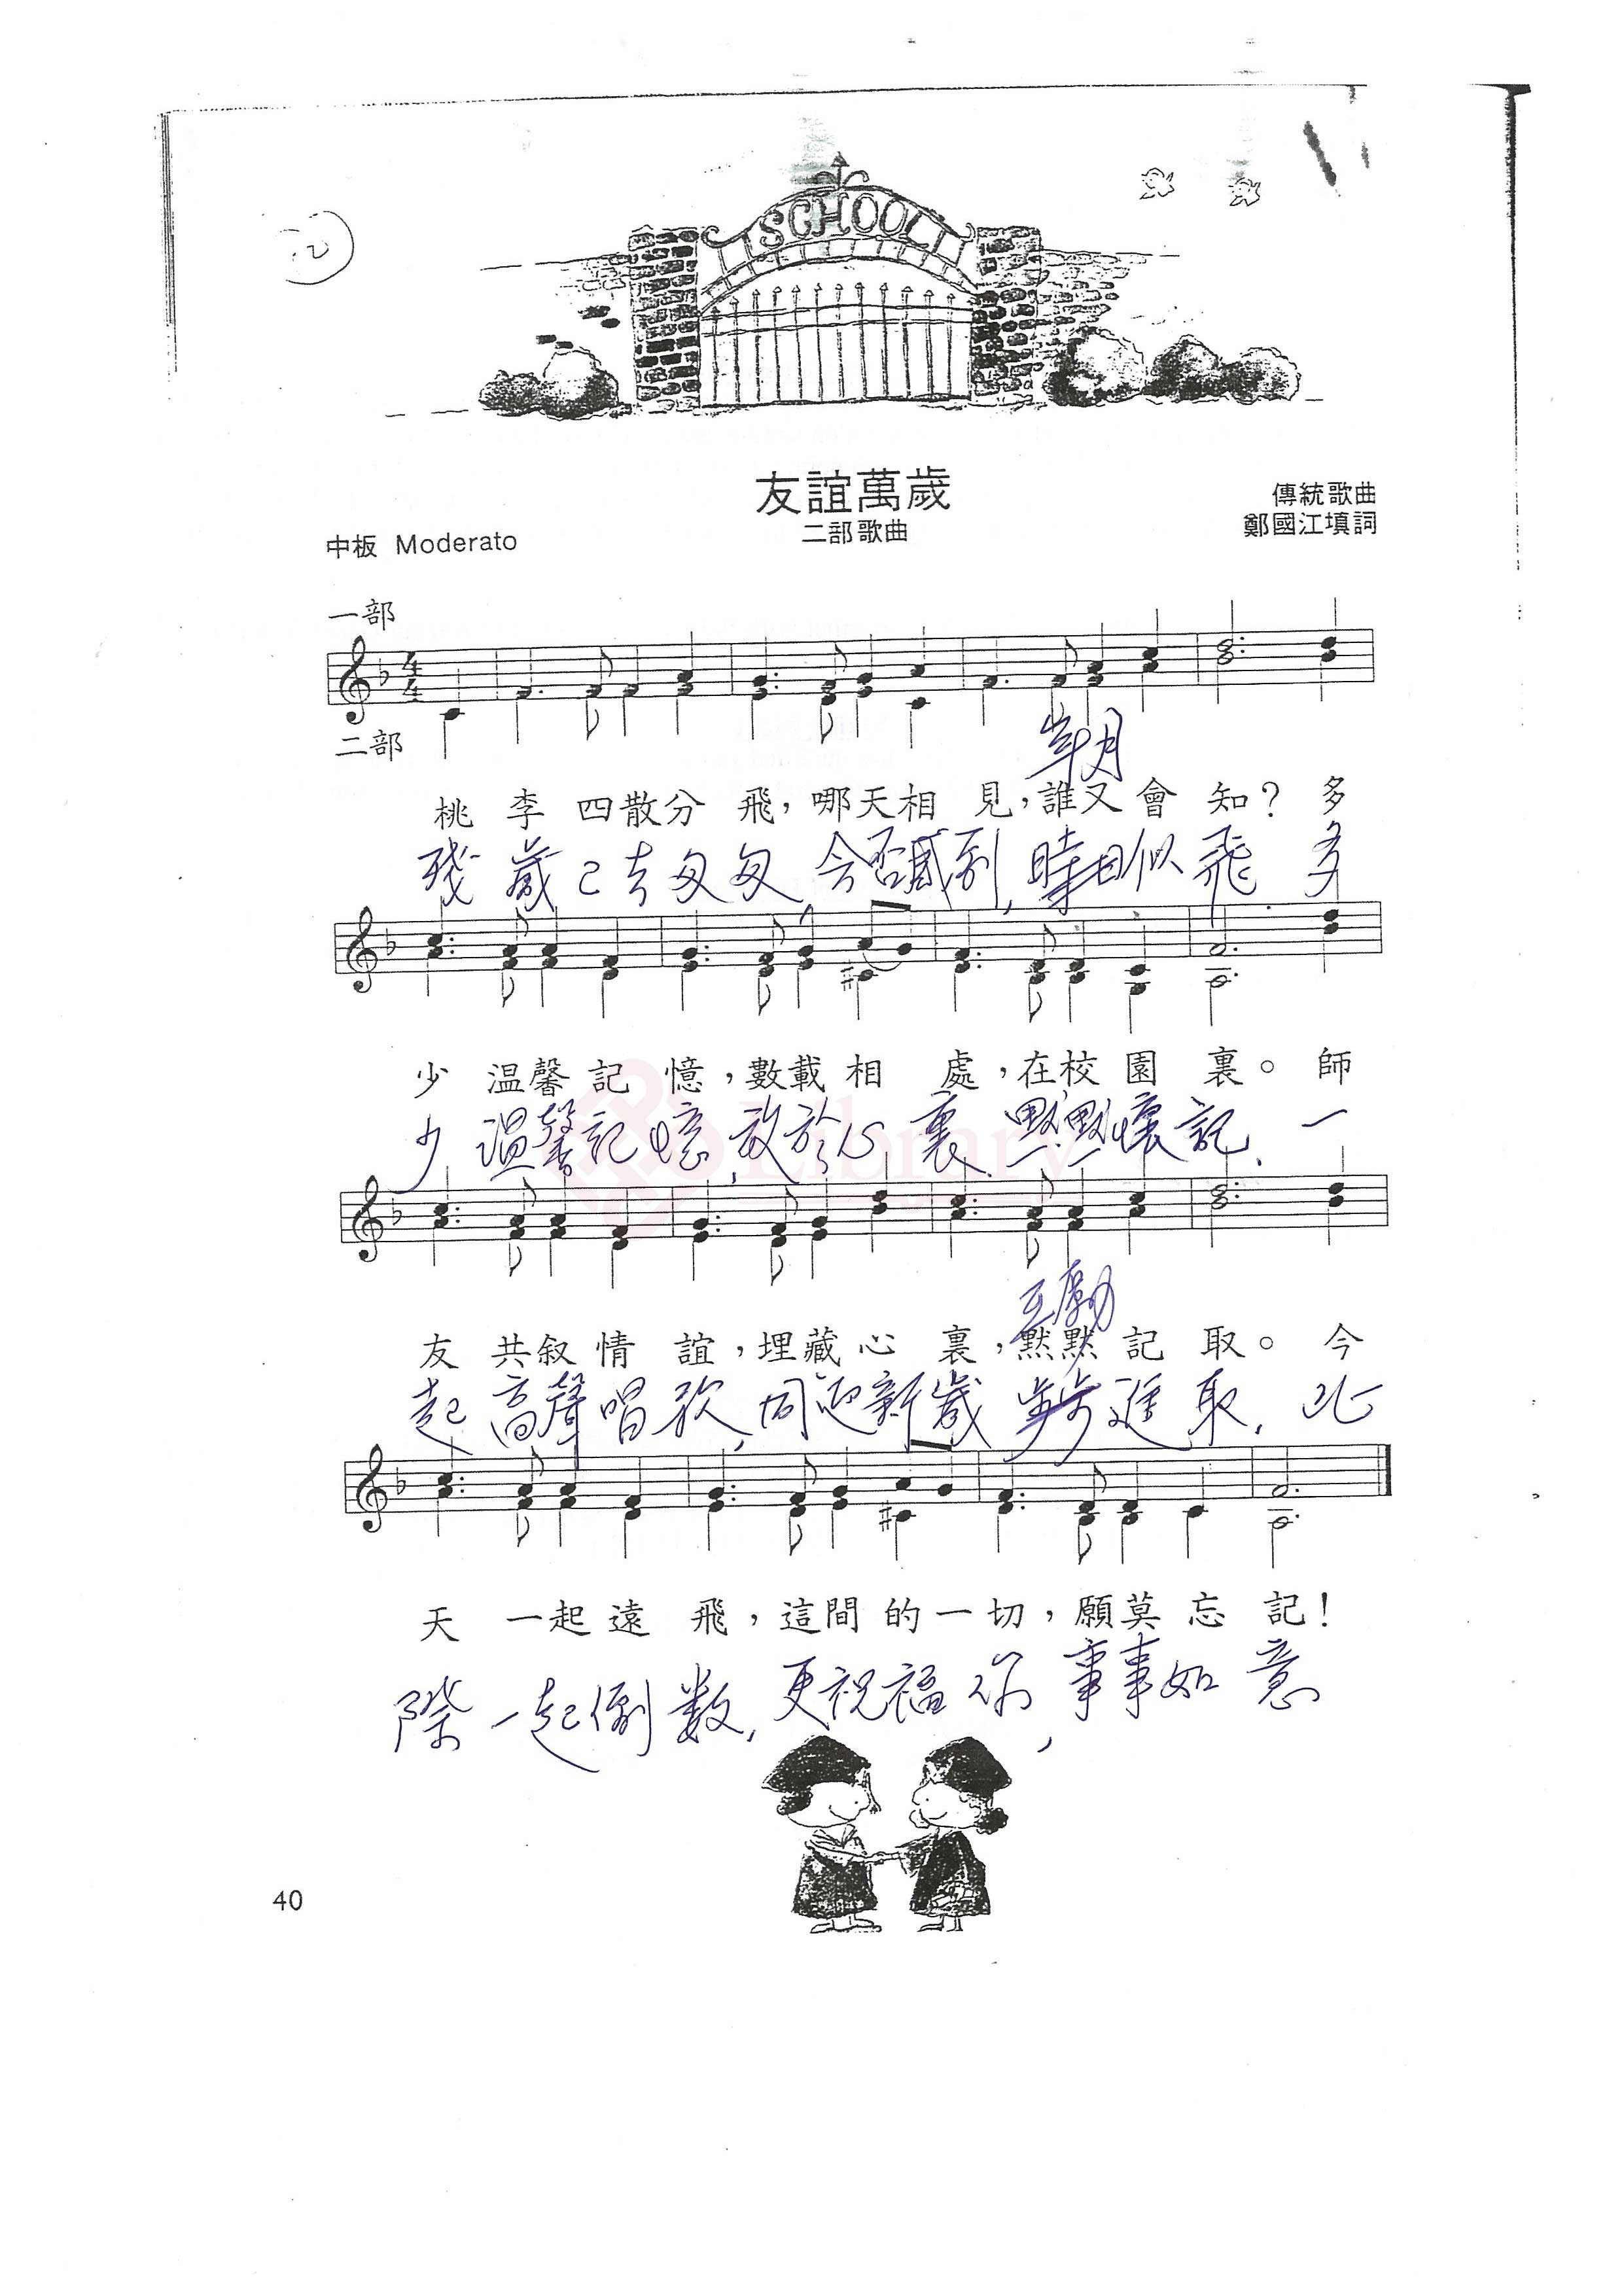 2
SCHOOL
友誼萬歲
二部歌曲
傳統歌曲
鄭國江填詞
中板 Moderato
一部
二部
歲月
桃李四散分飛，哪天相見，誰又會知？多
殘歲已去匆匆,今否感到,時日似飛 多
少溫馨記憶，數載相處，在校園裏。師
少溫馨記憶,放於心裏 默默懷記. 一
Library
互勵
友共敘情誼，埋藏心裏，默默記取。今
起高聲唱歌,同迎新歲 步步進取. 此
天一起遠飛，這間的一切，願莫忘記！
際一起倒數,更祝福你,事事如意
40